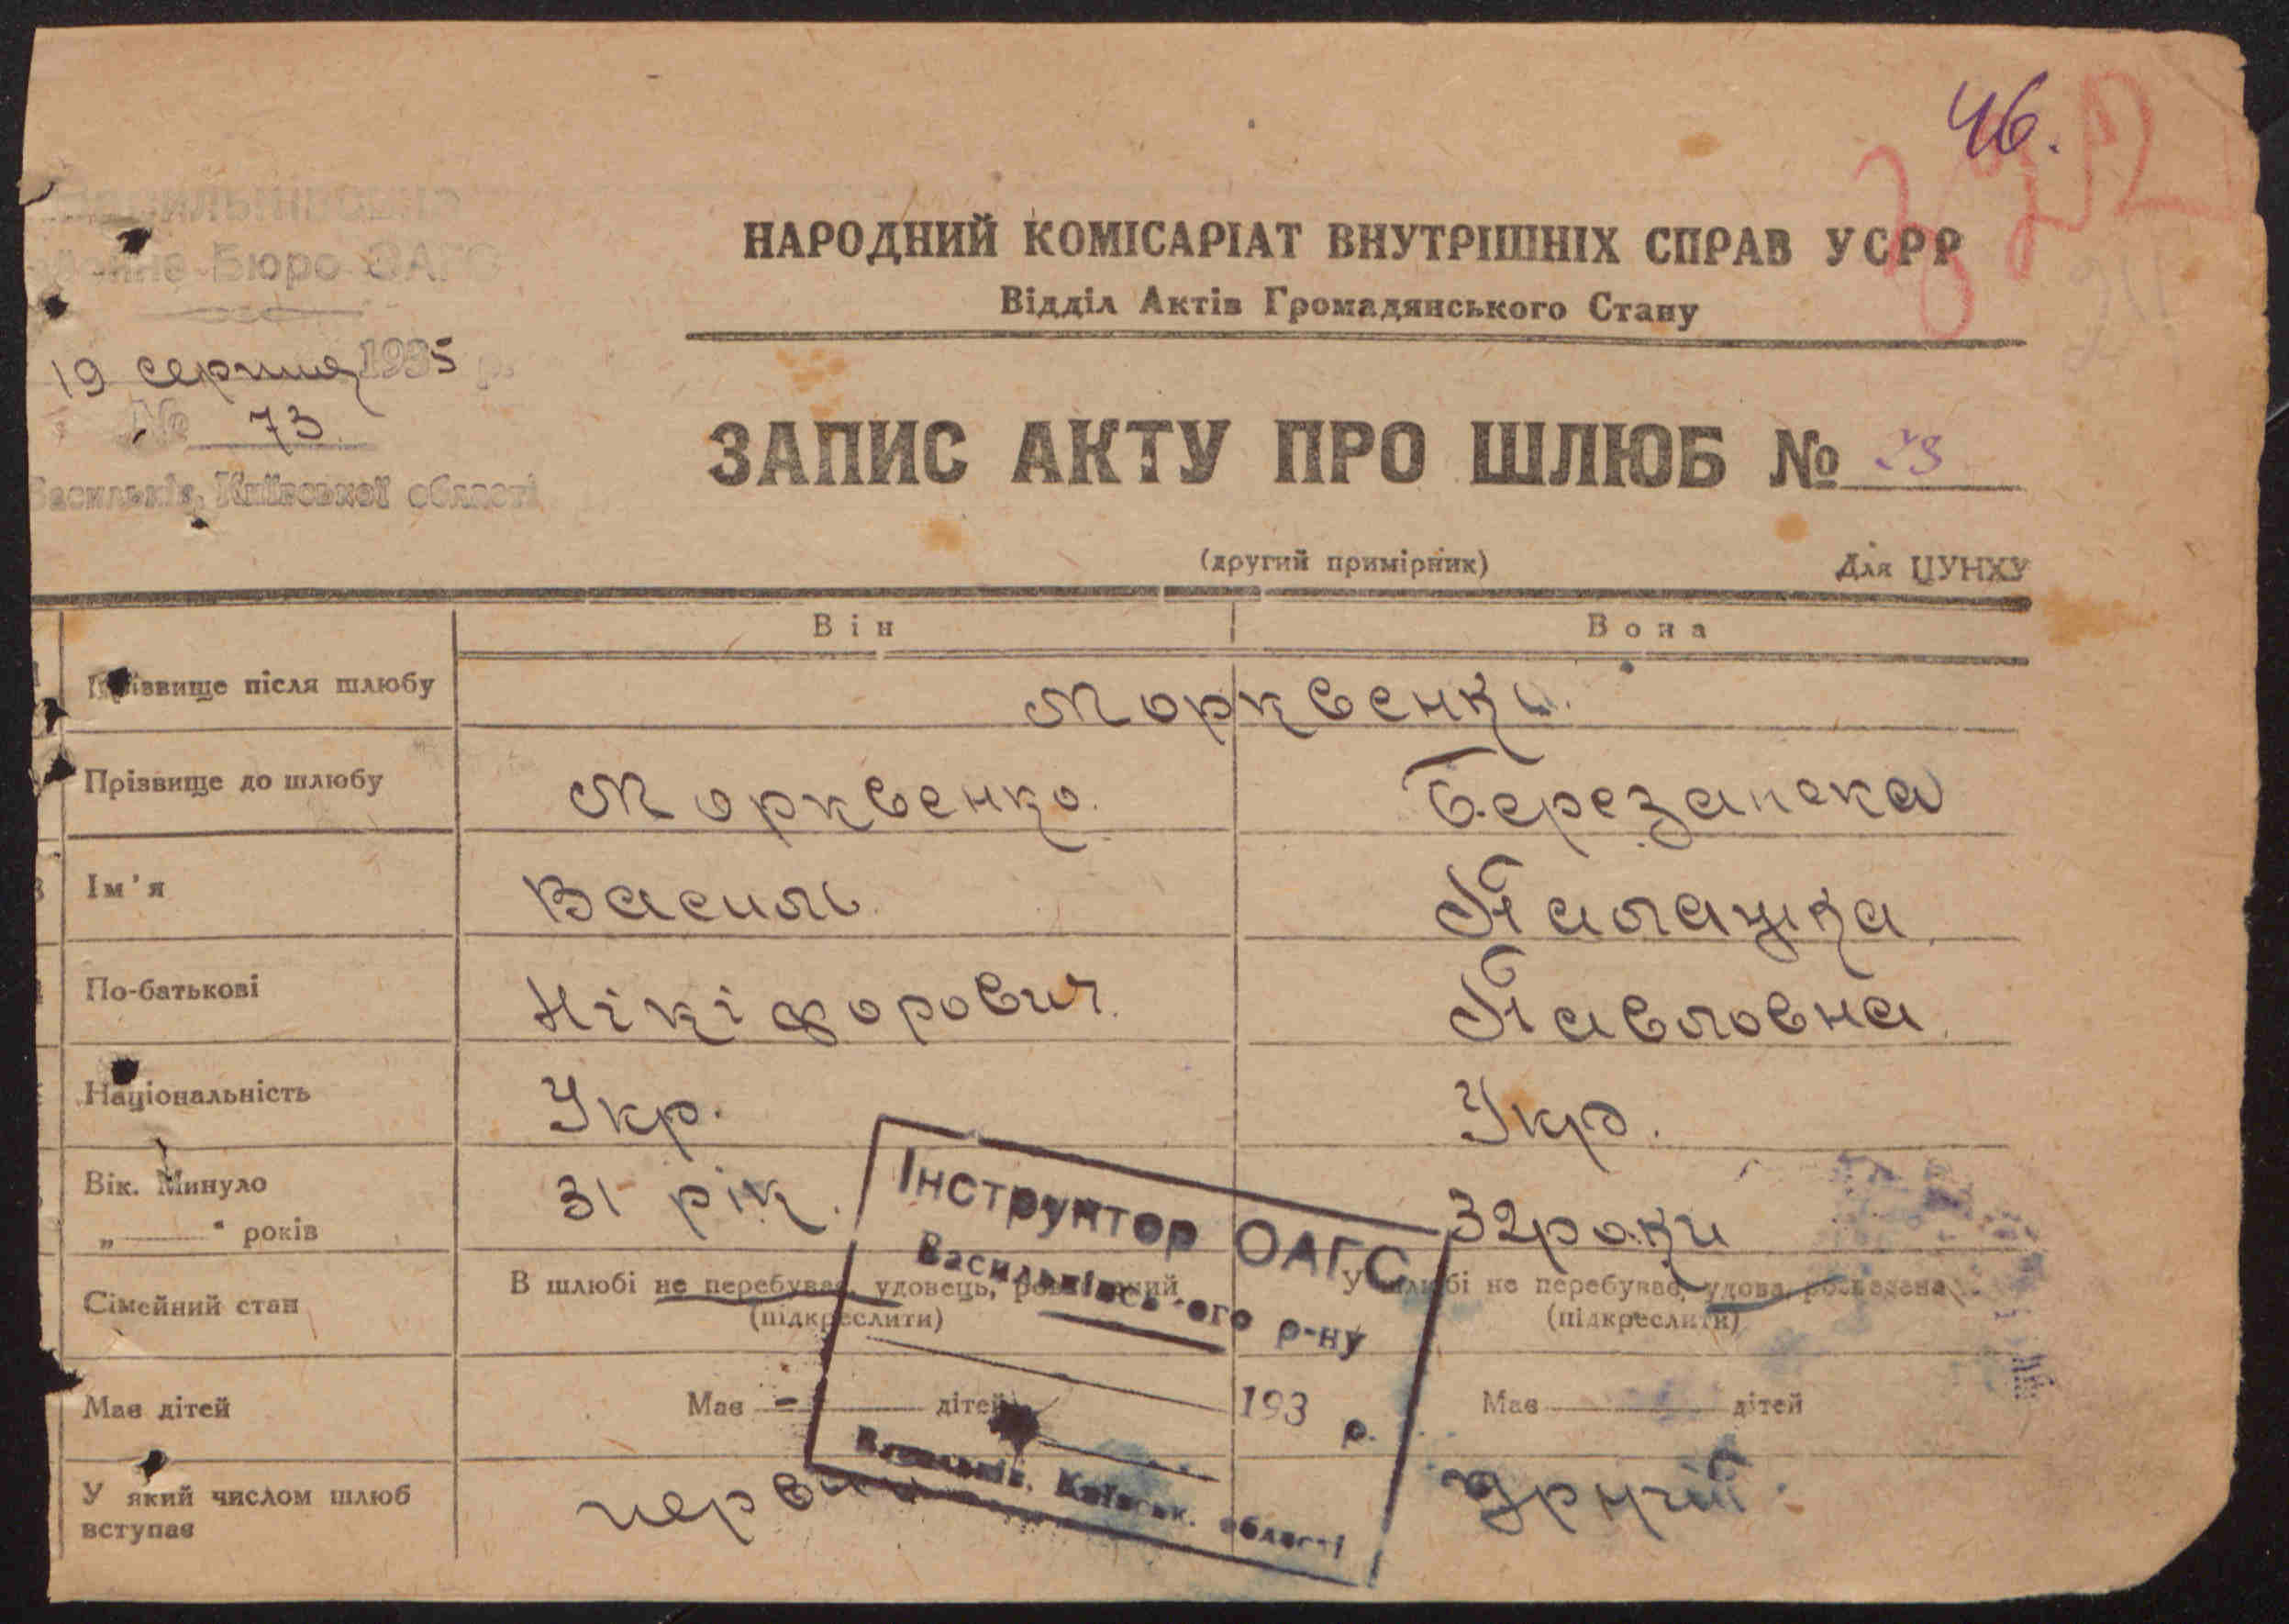 46.
Васильківське
Районне Бюро ЗАГС
19 серпня 1935 р.
№ 73
Васильків, Київської області
НАРОДНИЙ КОМІСАРІАТ ВНУТРІШНІХ СПРАВ УСРР
Відділ Актів Громадянського Стану
ЗАПИС АКТУ ПРО ШЛЮБ № 73
(другий примірник) Для ЦУНХУ
Він Вона
Прізвище після шлюбу Морквенки.
Прізвище до шлюбу Морквенко. Березанска
Ім'я Василь Палашка
По-батькові Нікіфорович. Павловна
Національність Укр. Укр.
Вік. Минуло 31 рік. 32 роки
„ “ років
Сімейний стан В шлюбі не перебуває, удовець, розведений У шлюбі не перебуває, удова, розведена
(підкреслити) (підкреслити)
Має дітей Має - дітей Має дітей
У який числом шлюб вступає первий другий.
Інструктор ОАГС
Васильківського р-ну
193 р.
Васильків, Київськ. області